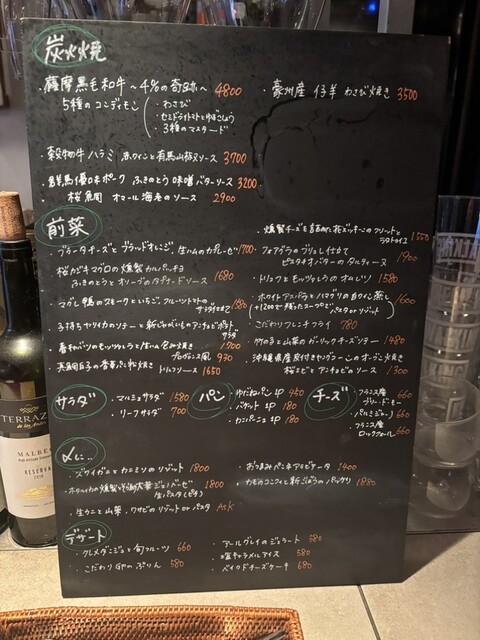 炭火焼
・薩摩黒毛和牛 ～4%の奇跡～ 4800
5種のコンディモン
・わさび
・セミドライトマトとゆずこしょう
・3種のマスタード
・豪州産 仔羊 わさび焼き 3500
・穀物牛ハラミ 赤ワインと有馬山椒ソース 3700
・群馬優味ポーク ふきのとう味噌バターソース 3200
・桜鯛 オマール海老のソース 2900
前菜
・ブラータチーズとブラッドオレンジ、生ハムのカプレーゼ 1700
・桜ガツオマグロの燻製カルパッチョ
ふきのとうとオリーブのタプナードソース 1680
・マグレ鴨のスモークといちご、フルーツトマトの
サラダ仕立て 1580
・子持ちヤリイカのソテーと新じゃがいものアンチョビポテト
サラダ
・春キャベツのモッツァレラと生ハム包み焼き 1700
プロヴァンス風 930
香草パン粉焼き トリュフソース 1650
・燻製チーズを詰めた花ズッキーニのフリットと
ラタトゥイユ
・フォアグラのブリュレ仕立て
ピスタチオバターのタルティーヌ 1900
・トリュフとモッツァレラのオムレツ 1580
・ホワイトアスパラとハマグリの白ワイン蒸し 1600
(+1200で残ったスープでパスタorリゾット)
・こだわりフレンチフライ 780
・竹の子と山菜のガーリックチーズソテー 1480
・沖縄県産皮付きヤングコーンのオーブン焼き
桜エビとアンチョビのソース 1300
サラダ
・マルミヨサラダ 1580
・リーフサラダ 700
パン
・ゆだねパン 1P 450
・バゲット 1P 180
・カンパーニュ 1P 180
チーズ
・フランス産
ブリ・ド・モー 660
・パルミジャーノ 660
・フランス産
ロックフォール 660
〆に…
・ズワイガニとカニミソのリゾット 1800
・ホタルイカの燻製とそら豆 ジェノベーゼ 1800
生パスタ
・生ウニと山菜、ワサビのリゾット or パスタ Ask
・おつまみペンネアラビアータ 1400
・カモのコンフィと新ごぼうの 1880
デザート
・クレメダンジュと旬フルーツ 660
・こだわり卵のぷりん 580
・アールグレイのジェラート 580
・塩キャラメルアイス 580
・ベイクドチーズケーキ 680
TERRAZAS
de los Andes
MALBEC
RESERVA